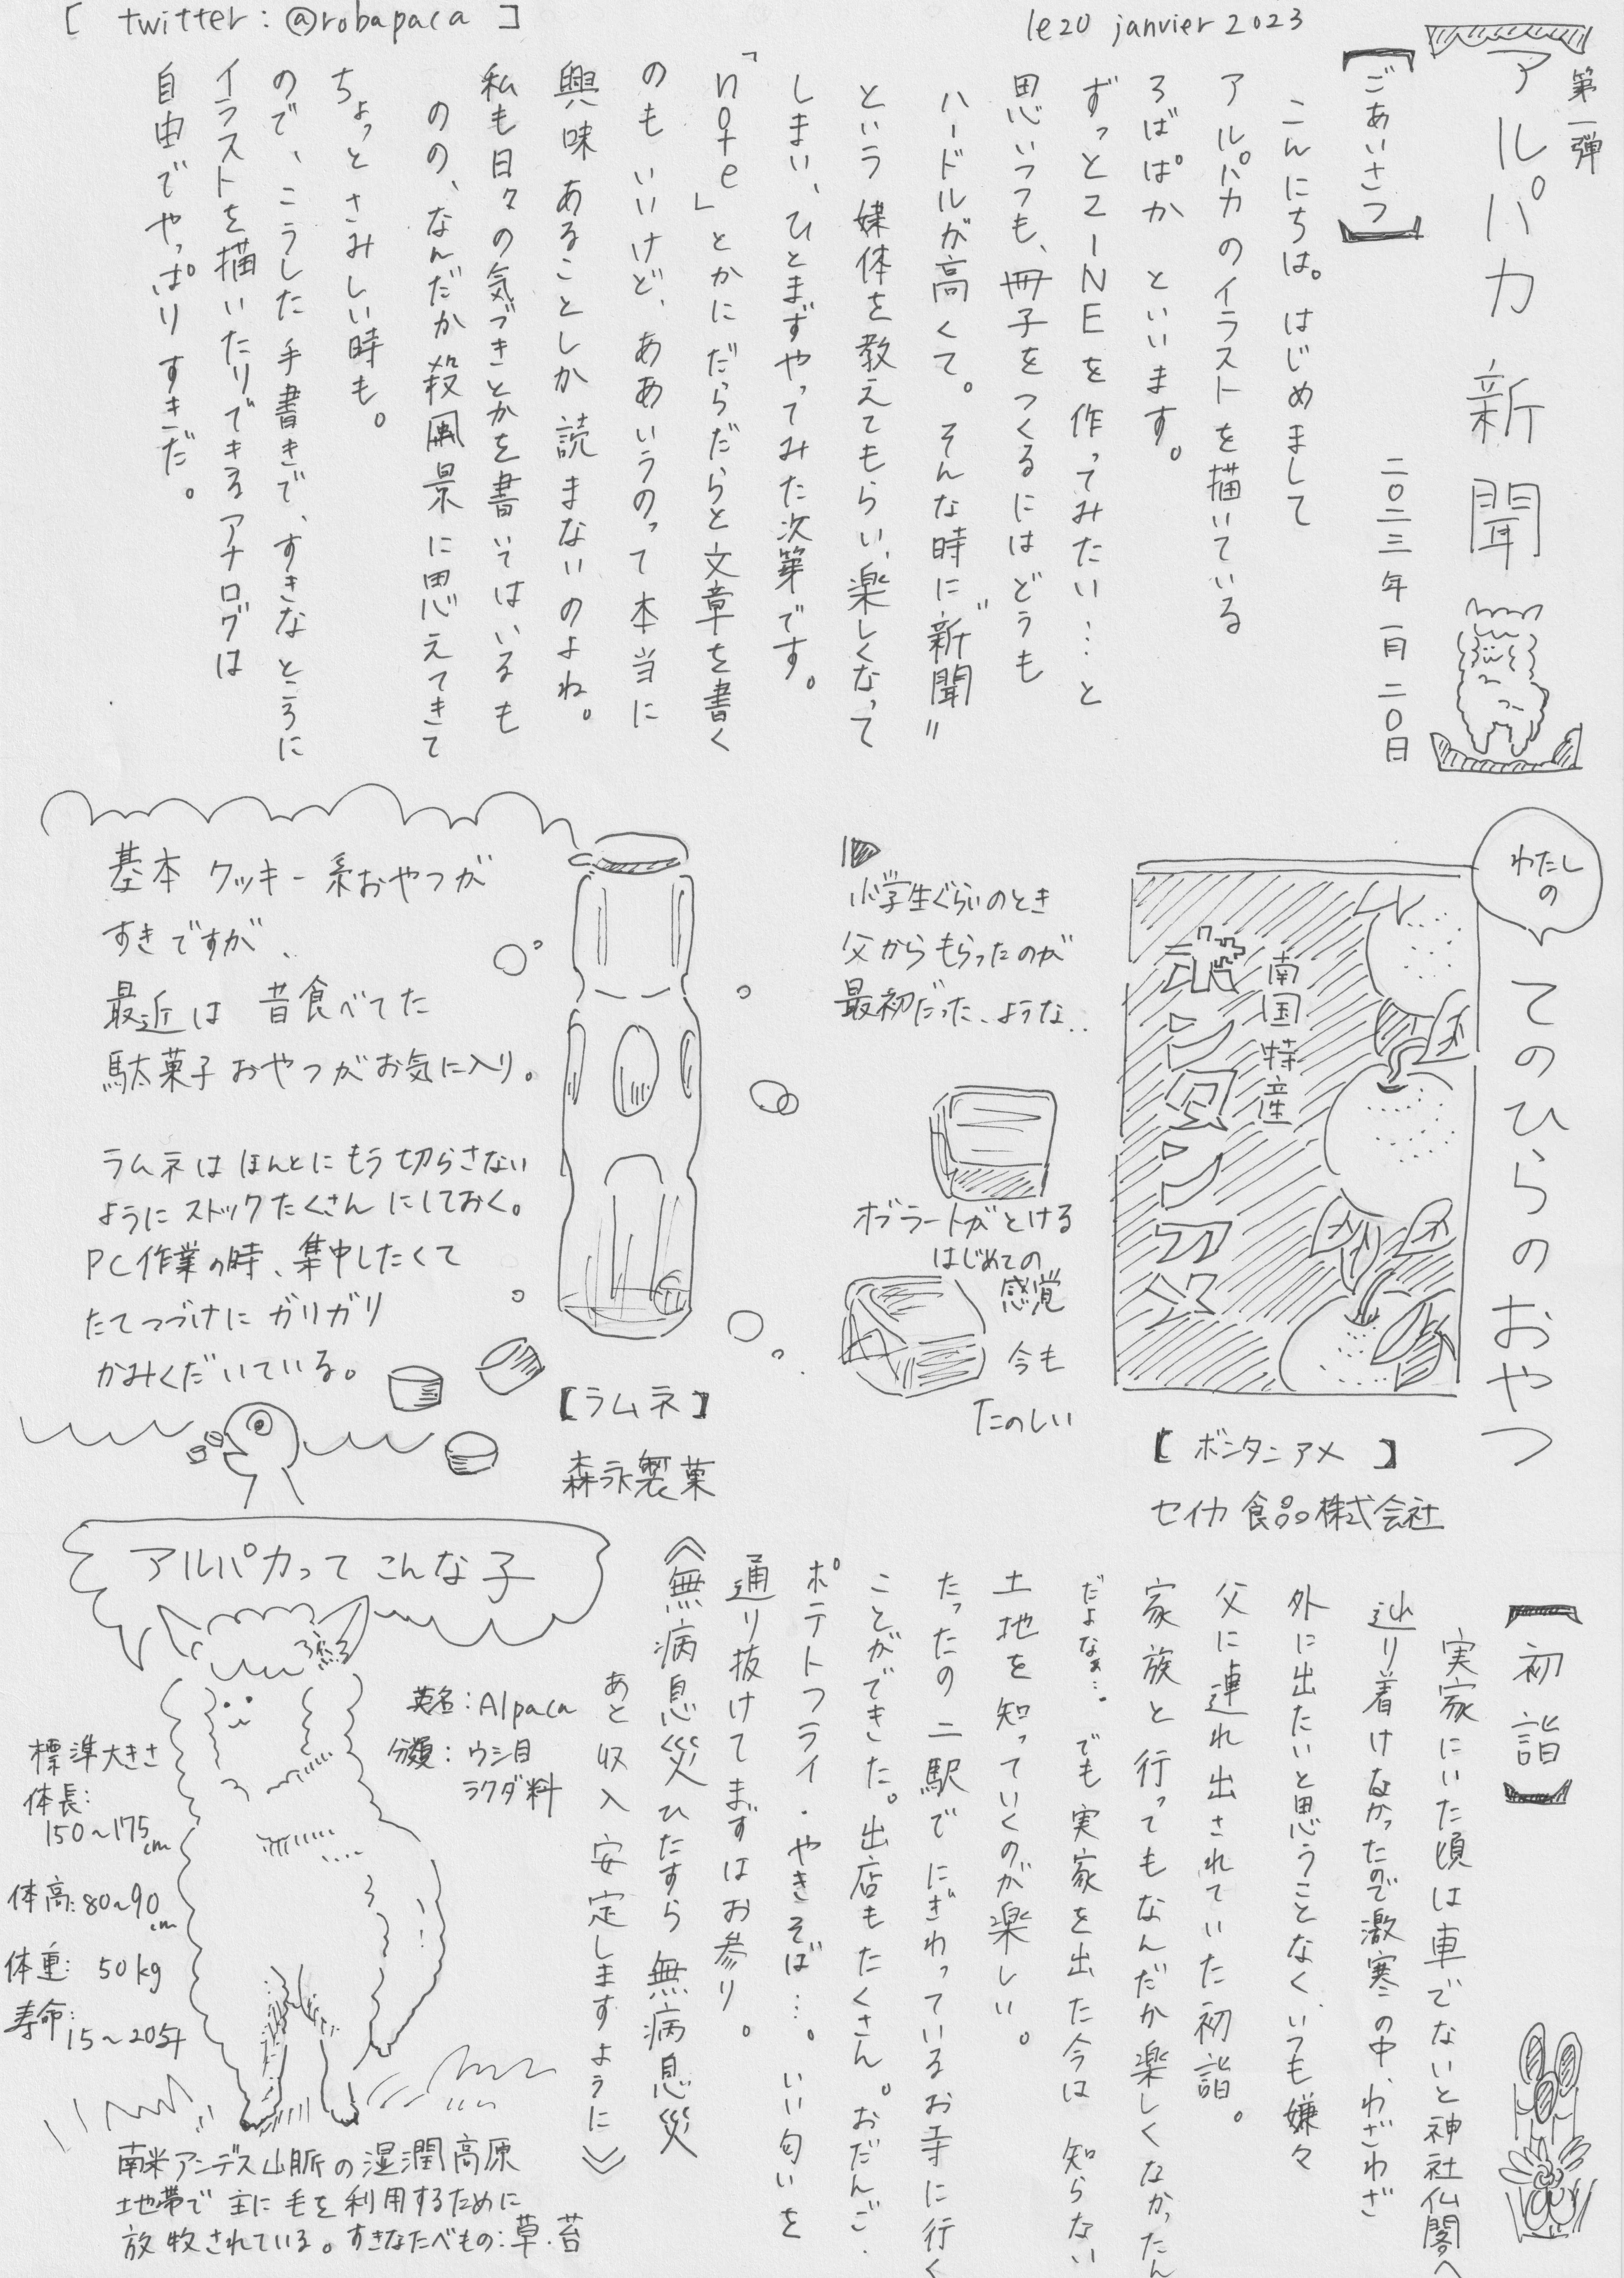 [ twitter : @robapaca ]
le 20 janvier 2023
第一弾
アルパカ新聞
二〇二三年一月二〇日
【ごあいさつ】
こんにちは。はじめまして
アルパカのイラストを描いている
ろばぱか といいます。
ずっとZINEを作ってみたい…と
思いつつも、冊子をつくるにはどうも
ハードルが高くて。そんな時に〝新聞〟
という媒体を教えてもらい、楽しくなって
しまい、ひとまずやってみた次第です。
「note」とかにだらだらと文章を書く
のもいいけど、ああいうのって本当に
興味あることしか読まないのよね。
私も日々の気づきとかを書いてはいるも
のの、なんだか殺風景に思えてきて
ちょっとさみしい時も。
ので、こうした手書きで、すきなところに
イラストを描いたりできるアナログは
自由でやっぱりすきだ。
わたしの
てのひらのおやつ
南国特産
ボンタンアメ
【ボンタンアメ】
セイカ食品株式会社
小学生ぐらいのとき
父からもらったのが
最初だった、ような..
オブラートがとける
はじめての
感覚
今も
たのしい
【ラムネ】
森永製菓
基本 クッキー系おやつが
すきですが、
最近は 昔食べてた
駄菓子おやつがお気に入り。
ラムネは ほんとにもう切らさない
ようにストックたくさんにしておく。
PC作業の時、集中したくて
たてつづけにガリガリ
かみくだいている。
【初詣】
実家にいた頃は車でないと神社仏閣へ
辿り着けなかったので激寒の中、わざわざ
外に出たいと思うことなく、いつも嫌々
父に連れ出されていた初詣。
家族と行ってもなんだか楽しくなかったん
だよなぁ…。でも実家を出た今は 知らない
土地を知っていくのが楽しい。
たったの二駅でにぎわっているお寺に行く
ことができた。出店もたくさん。おだんご・
ポテトフライ・やきそば…。いい匂いを
通り抜けてまずはお参り。
《無病息災ひたすら無病息災
あと収入安定しますように》
アルパカって こんな子
英名：Alpaca
分類：ウシ目
ラクダ科
標準大きさ
体長：
150～175cm
体高：80～90cm
体重：50kg
寿命：15～20年
南米アンデス山脈の湿潤高原
地帯で 主に毛を利用するために
放牧されている。すきなたべもの：草・苔